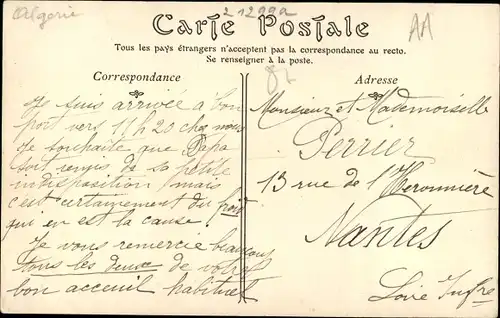 Algerie
212992
AA
Carte Postale
82
Tous les pays étrangers n'acceptent pas la correspondance au recto.
Se renseigner à la poste.
Correspondance
Adresse
Je suis arrivée à bon
port vers 11h20 chez nous
Je souhaite que Papa
soit remis de sa petite
indisposition mais
c'est certainement du froid
qui en est la cause.
Je vous remercie beaucoup
tous les deux de votre
bon acceuil habituel
Monsieur et Mademoiselle
Perrier
13 rue de l'Heronnière
Nantes
Loire Infre